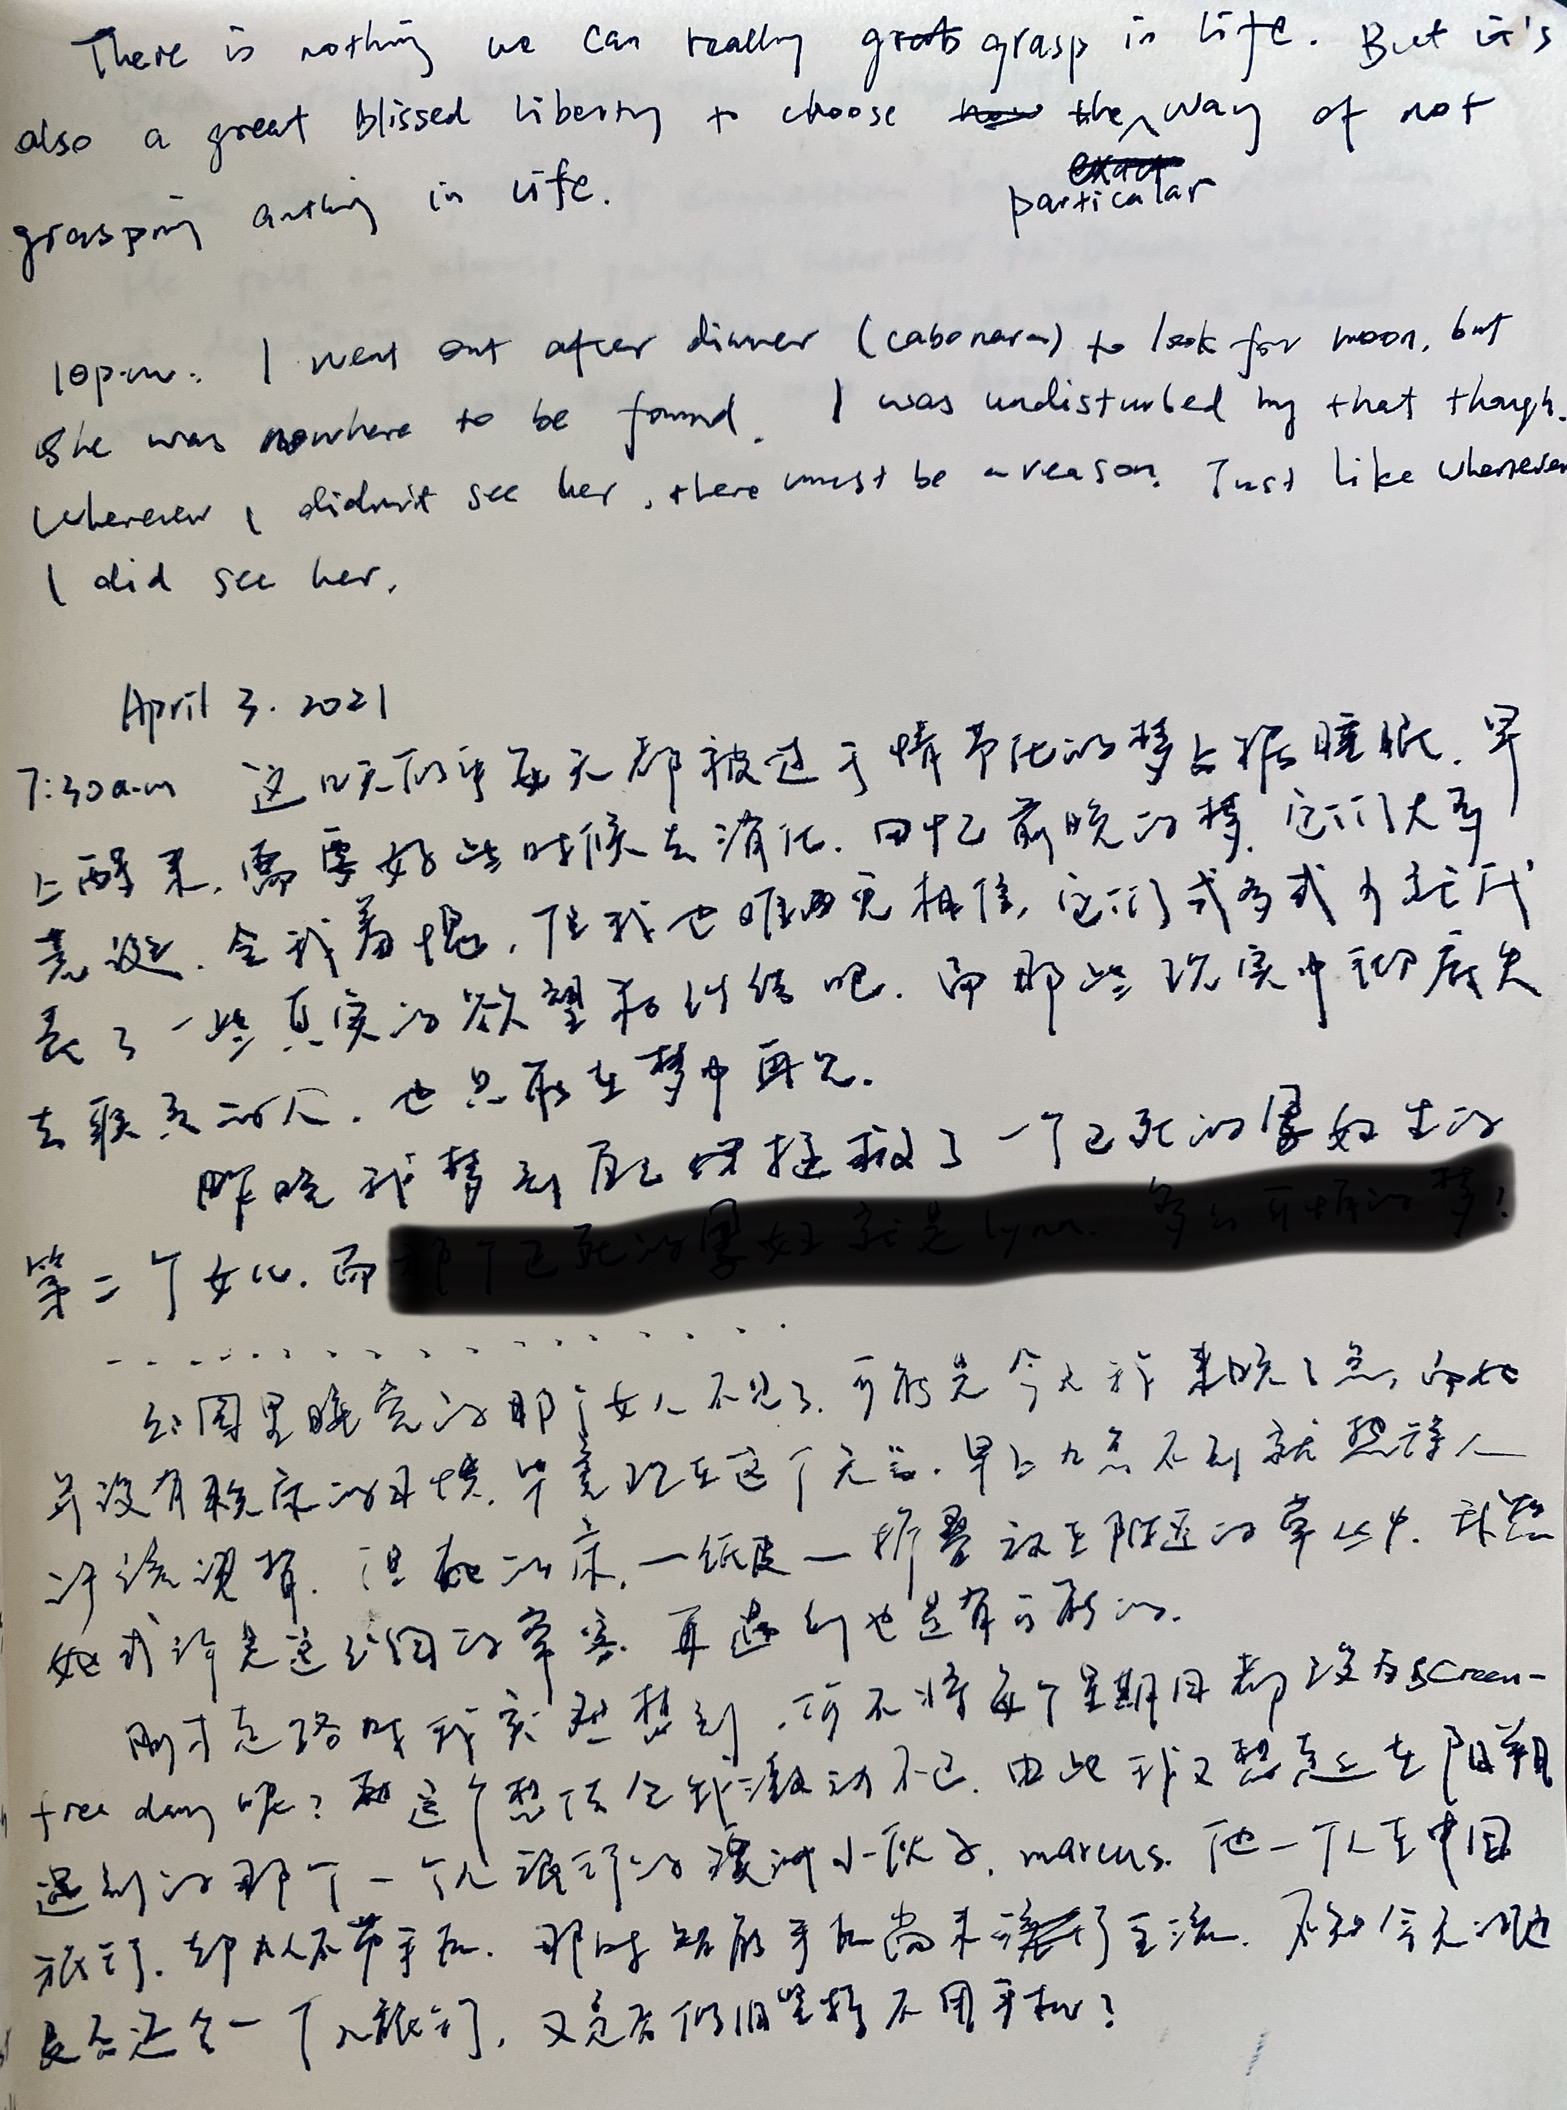 There is nothing we can really grasp in life. But it's
also a great blissed liberty to choose the way of not
particular
grasping anthing in life.
10p.m. I went out after dinner (cabonara) to look for moon, but
she was nowhere to be found. I was undisturbed by that though.
Whenever I didn't see her, there must be a reason. Just like whenever
I did see her.
April 3. 2021
7:30a.m 这几天几乎每天都被过于情节化的梦占据睡眠.早
上醒来,需要好些时候去消化.回忆前晚的梦,它们大率
荒诞.令我羞愧,但我也唯两宽相信,它们或多或少都代
表了一些真实的欲望和纠结吧.而那些现实中彻底失
去联系的人.也只能在梦中再见.
昨晚我梦到自己 拯救了一个已死的男妓生的
第二个女儿.而
公园里睡觉的那个女人不见了.可能是今天我来晚了点,而她
并没有赖床的习惯.毕竟现在这个天气.早上九点不到就热得人
汗流浃背.但她的床,一纸皮一折叠放在附近的草丛中.我想
她或许是这公园的常客.再遇到也是有可能的.
刚才走路时我突然想到,何不将每个星期日都设为screen-
free day呢?这个想法令我激动不已.由此我又想起在阳朔
遇到的那个一个人旅行的澳洲小伙子,marcus.他一个人在中国
旅行.却从不带手机.那时智能手机尚未 了主流.不知今天的他
是否还会一个人旅行,又是否仍旧坚持不用手机?